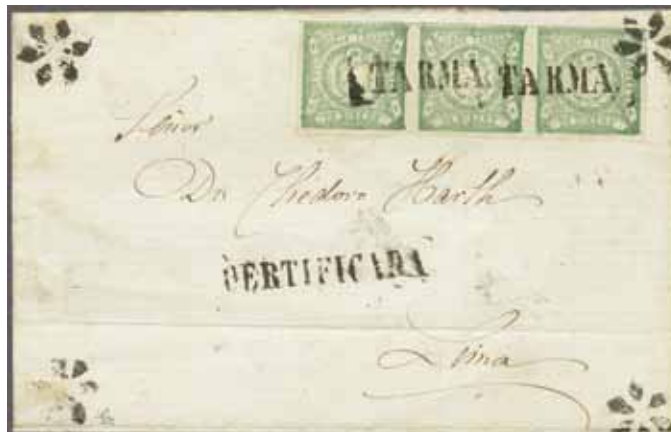 TARMA. TARMA.
Señor
Dn Theodoro Harth
CERTIFICADA
Lima